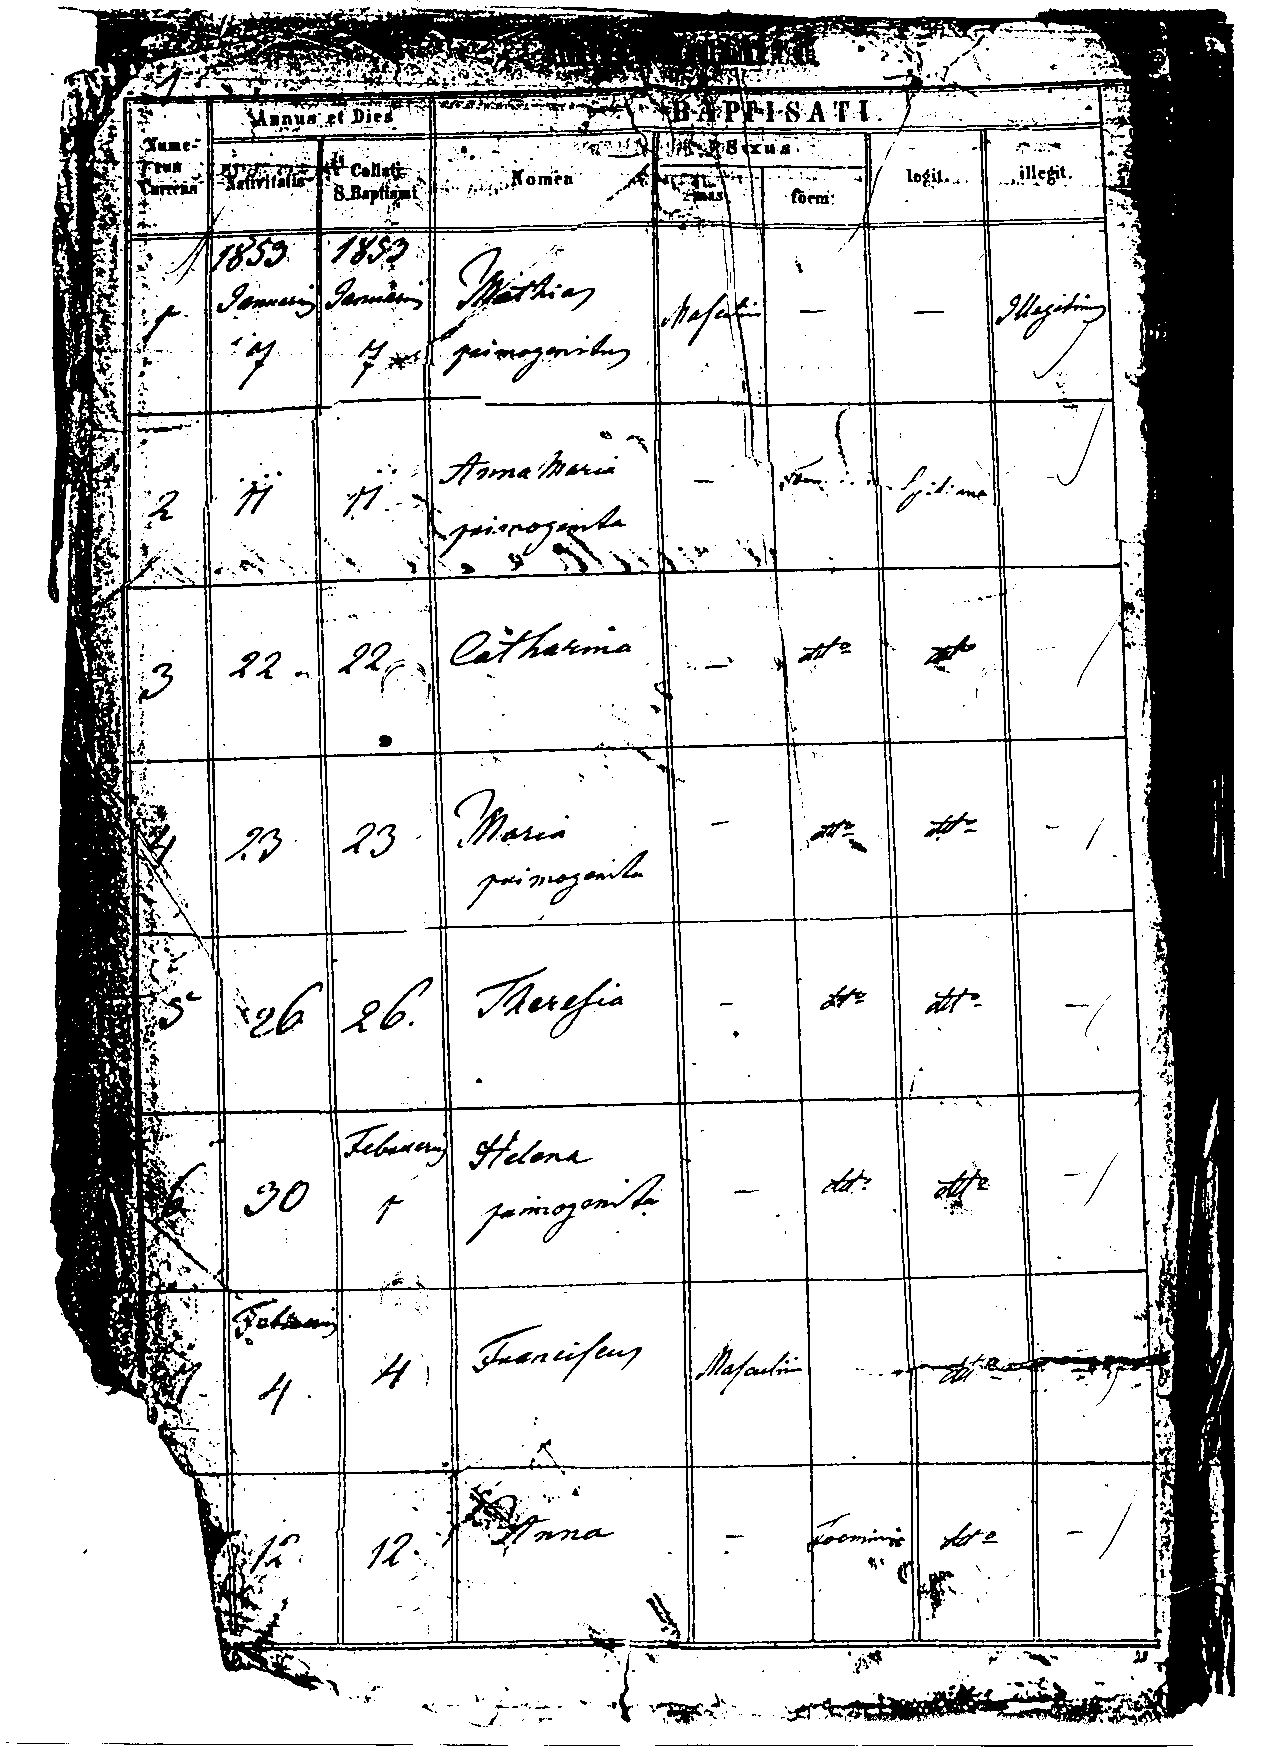 Annus et Dies
BAPTISATI.
Numerus Currens
Nativitatis
Collati S. Baptismi
Nomen
Sexus
mas.
foem:
legit.
illegit.
1853 1853
1 Januarij 7 Januarij 7 Mathias primogenitus Masculin — — Illegitimus
2 11 11 Anna Maria primogenita — Legitima
3 22 22 Catharina — dtto dtto
4 23 23 Maria primogenita — dtto dtto —
5 26 26. Theresia — dtto dtto —
6 30 Februarij 1 Helena primogenita — dtto dtto —
7 Februarij 4 4 Franciscus Masculin dtto
12 12. Anna — Foeminin dtto —